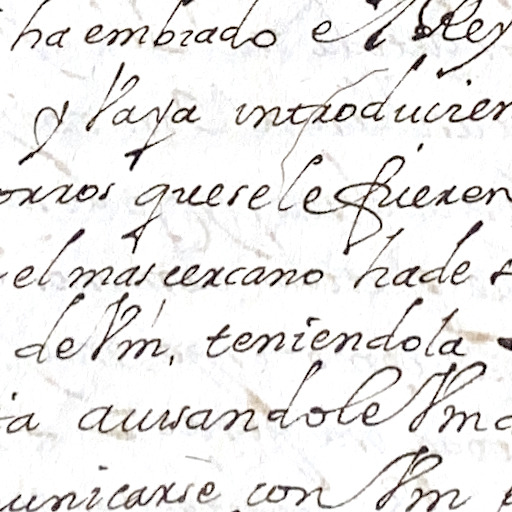 ha embiado el Rey
y Vaya introducien
orros que se le fueren
el mas cercano ha de s
de Vm, teniendola
ia auisandole Vm a
unicarse con Vm